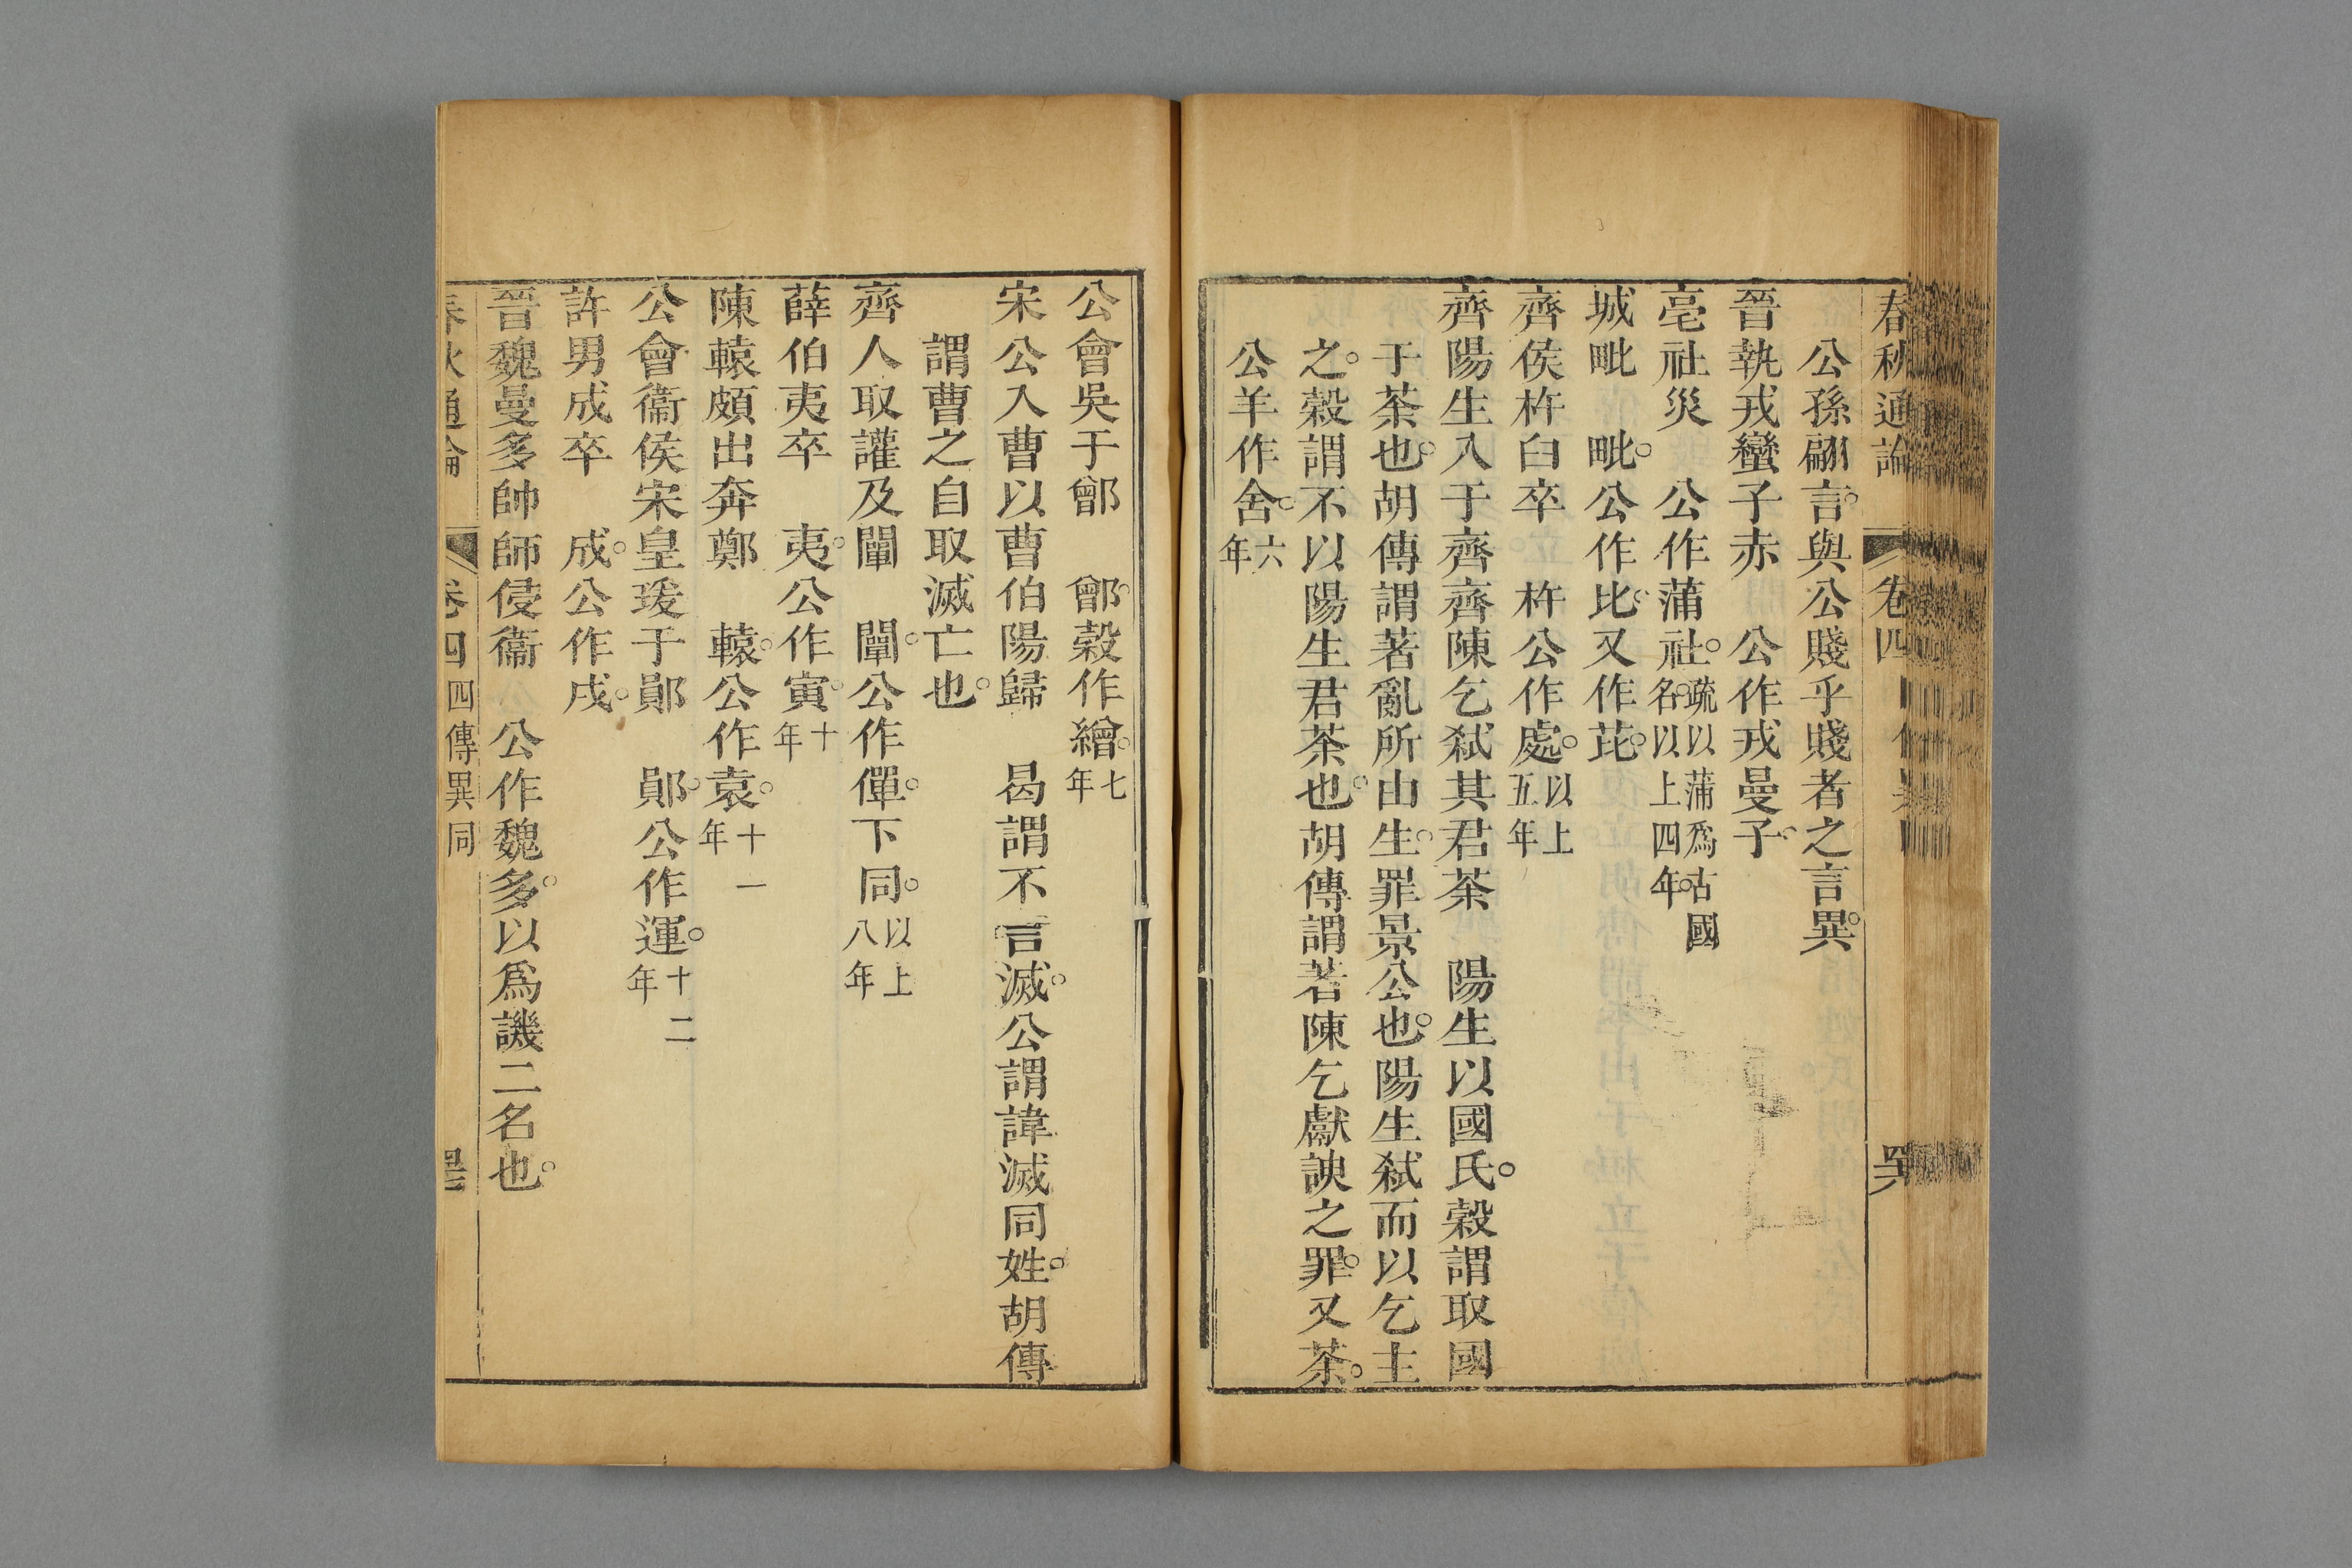 春秋通論 卷四
公孫翩言與公賤乎賤者之言異
晉執戎蠻子赤 公作戎曼子
亳社災 公作蒲社疏以蒲爲古國名以上四年
城毗 毗公作比又作芘
齊侯杵臼卒 杵公作處以上五年
齊陽生入于齊齊陳乞弑其君荼 陽生以國氏穀謂取國
于荼也胡傳謂著亂所由生罪景公也陽生弑而以乞主
之穀謂不以陽生君荼也胡傳謂若陳乞獻諛之罪又荼
公羊作舍六年
公會吳于鄫 鄫穀作繒七年
宋公入曹以曹伯陽歸 曷謂不言滅公謂諱滅同姓胡傳
謂曹之自取滅亡也
齊人取讙及闡 闡公作僤下同以上八年
薛伯夷卒 夷公作寅十年
陳轅頗出奔鄭 轅公作袁十一年
公會衞侯宋皇瑗于鄖 鄖公作運十二年
許男成卒 成公作戌
晉魏曼多帥師侵衞 公作魏多以爲譏二名也
春秋通論 卷四 四傳異同